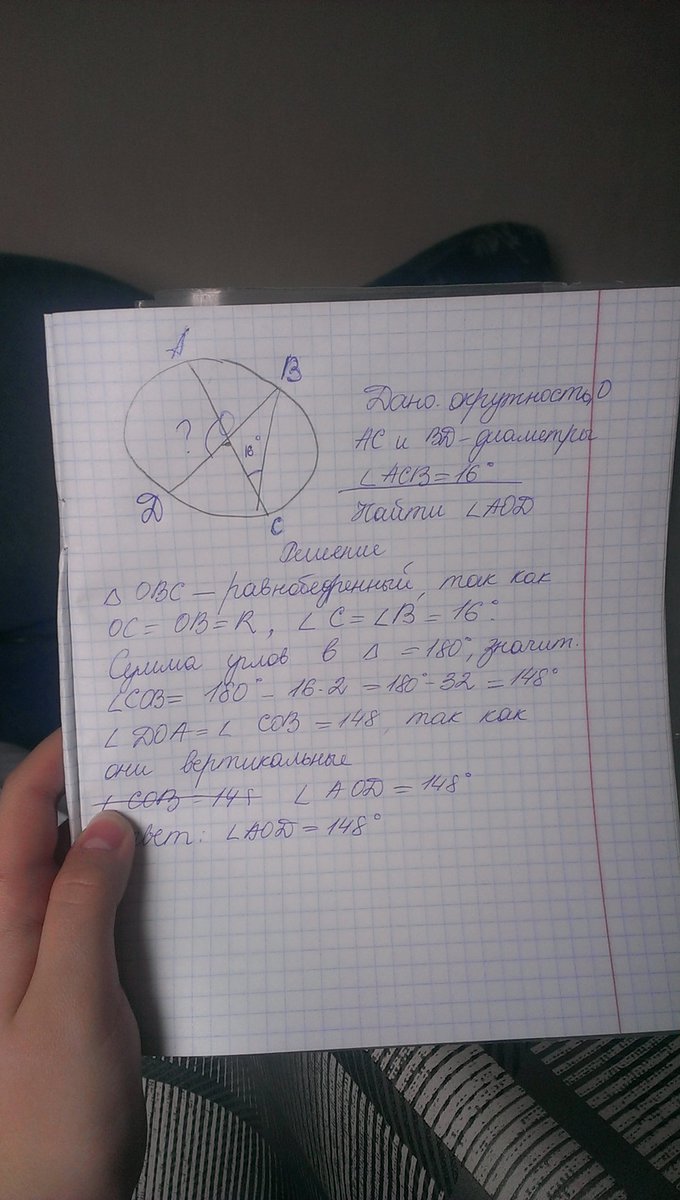 A
B
?
O
16°
D
C
Дано: окружность, O
AC и BD - диаметры
∠ACB = 16°
Найти ∠AOD
Решение
△ OBC — равнобедренный, так как
OC = OB = R, ∠C = ∠B = 16°.
Сумма углов в △ = 180°, значит.
∠COB = 180° - 16·2 = 180° - 32 = 148°
∠DOA = ∠ COB = 148, так как
они вертикальные
∠COB = 148 ∠AOD = 148°
твет: ∠AOD = 148°